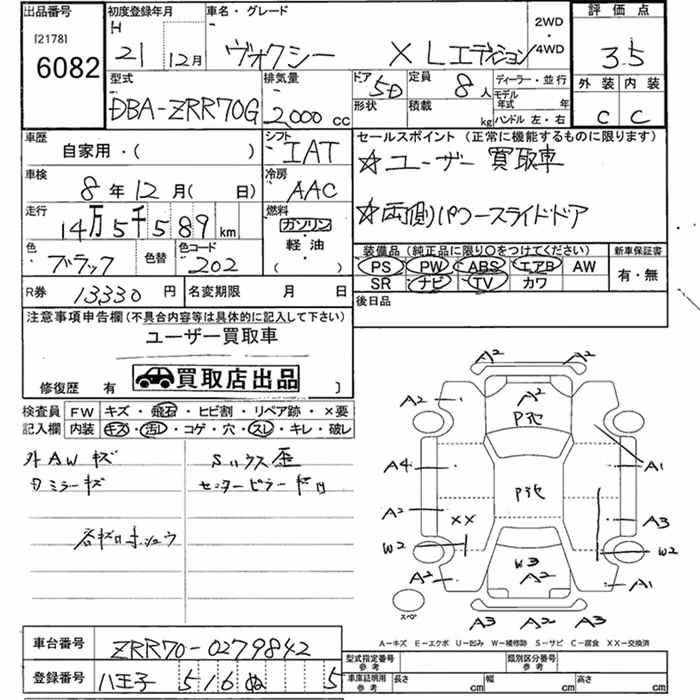 出品番号 初度登録年月 車名・グレード 評価点
[2178] H 2WD
6082 21 12月 ヴォクシー XLエディション ・4WD 3.5
型式 排気量 ドア 5D 定員 8人 ディーラー・並行 外装 内装
DBA-ZRR70G 2,000cc 形状 積載 kg モデル年式 年 ハンドル 左・右 C C
車歴 シフト セールスポイント (正常に機能するものに限ります)
自家用・( ) IAT ☆ユーザー買取車
車検 冷房
8年12月( 日) AAC ☆両側パワースライドドア
走行 燃料
14万5千589km ガソリン
色 色替 色コード 軽油・
ブラック 202 ( )
装備品 (純正品に限り○をつけてください) 新車保証書
PS PW ABS エアB AW 有・無
SR ナビ TV カワ
R券 13,330円 名変期限 月 日 後日品
注意事項申告欄 (不具合内容等は具体的に記入して下さい)
ユーザー買取車
修復歴 有 買取店出品 〕
検査員 FW キズ・飛石・ヒビ割・リペア跡・×要
記入欄 内装 キズ・汚レ・コゲ・穴・スレ・キレ・破レ
外AWキズ
ミラーキズ
センターピラー
A2 A2
A2 A2 A2
Pヌ
A4 A1
Pヌ
A2 XX A3
W2 W2
W3
A2 A2 A1
スペ
A3 A2 A3
A-キズ E-エクボ U-凹み W-補修跡 S-サビ C-腐食 XX-交換済
車台番号 ZRR70-0279842
型式指定番号 参考 類別区分番号 参考
登録番号 八王子 516 ぬ 5
車庫証明用 参考 長さ cm 幅 cm 高さ cm